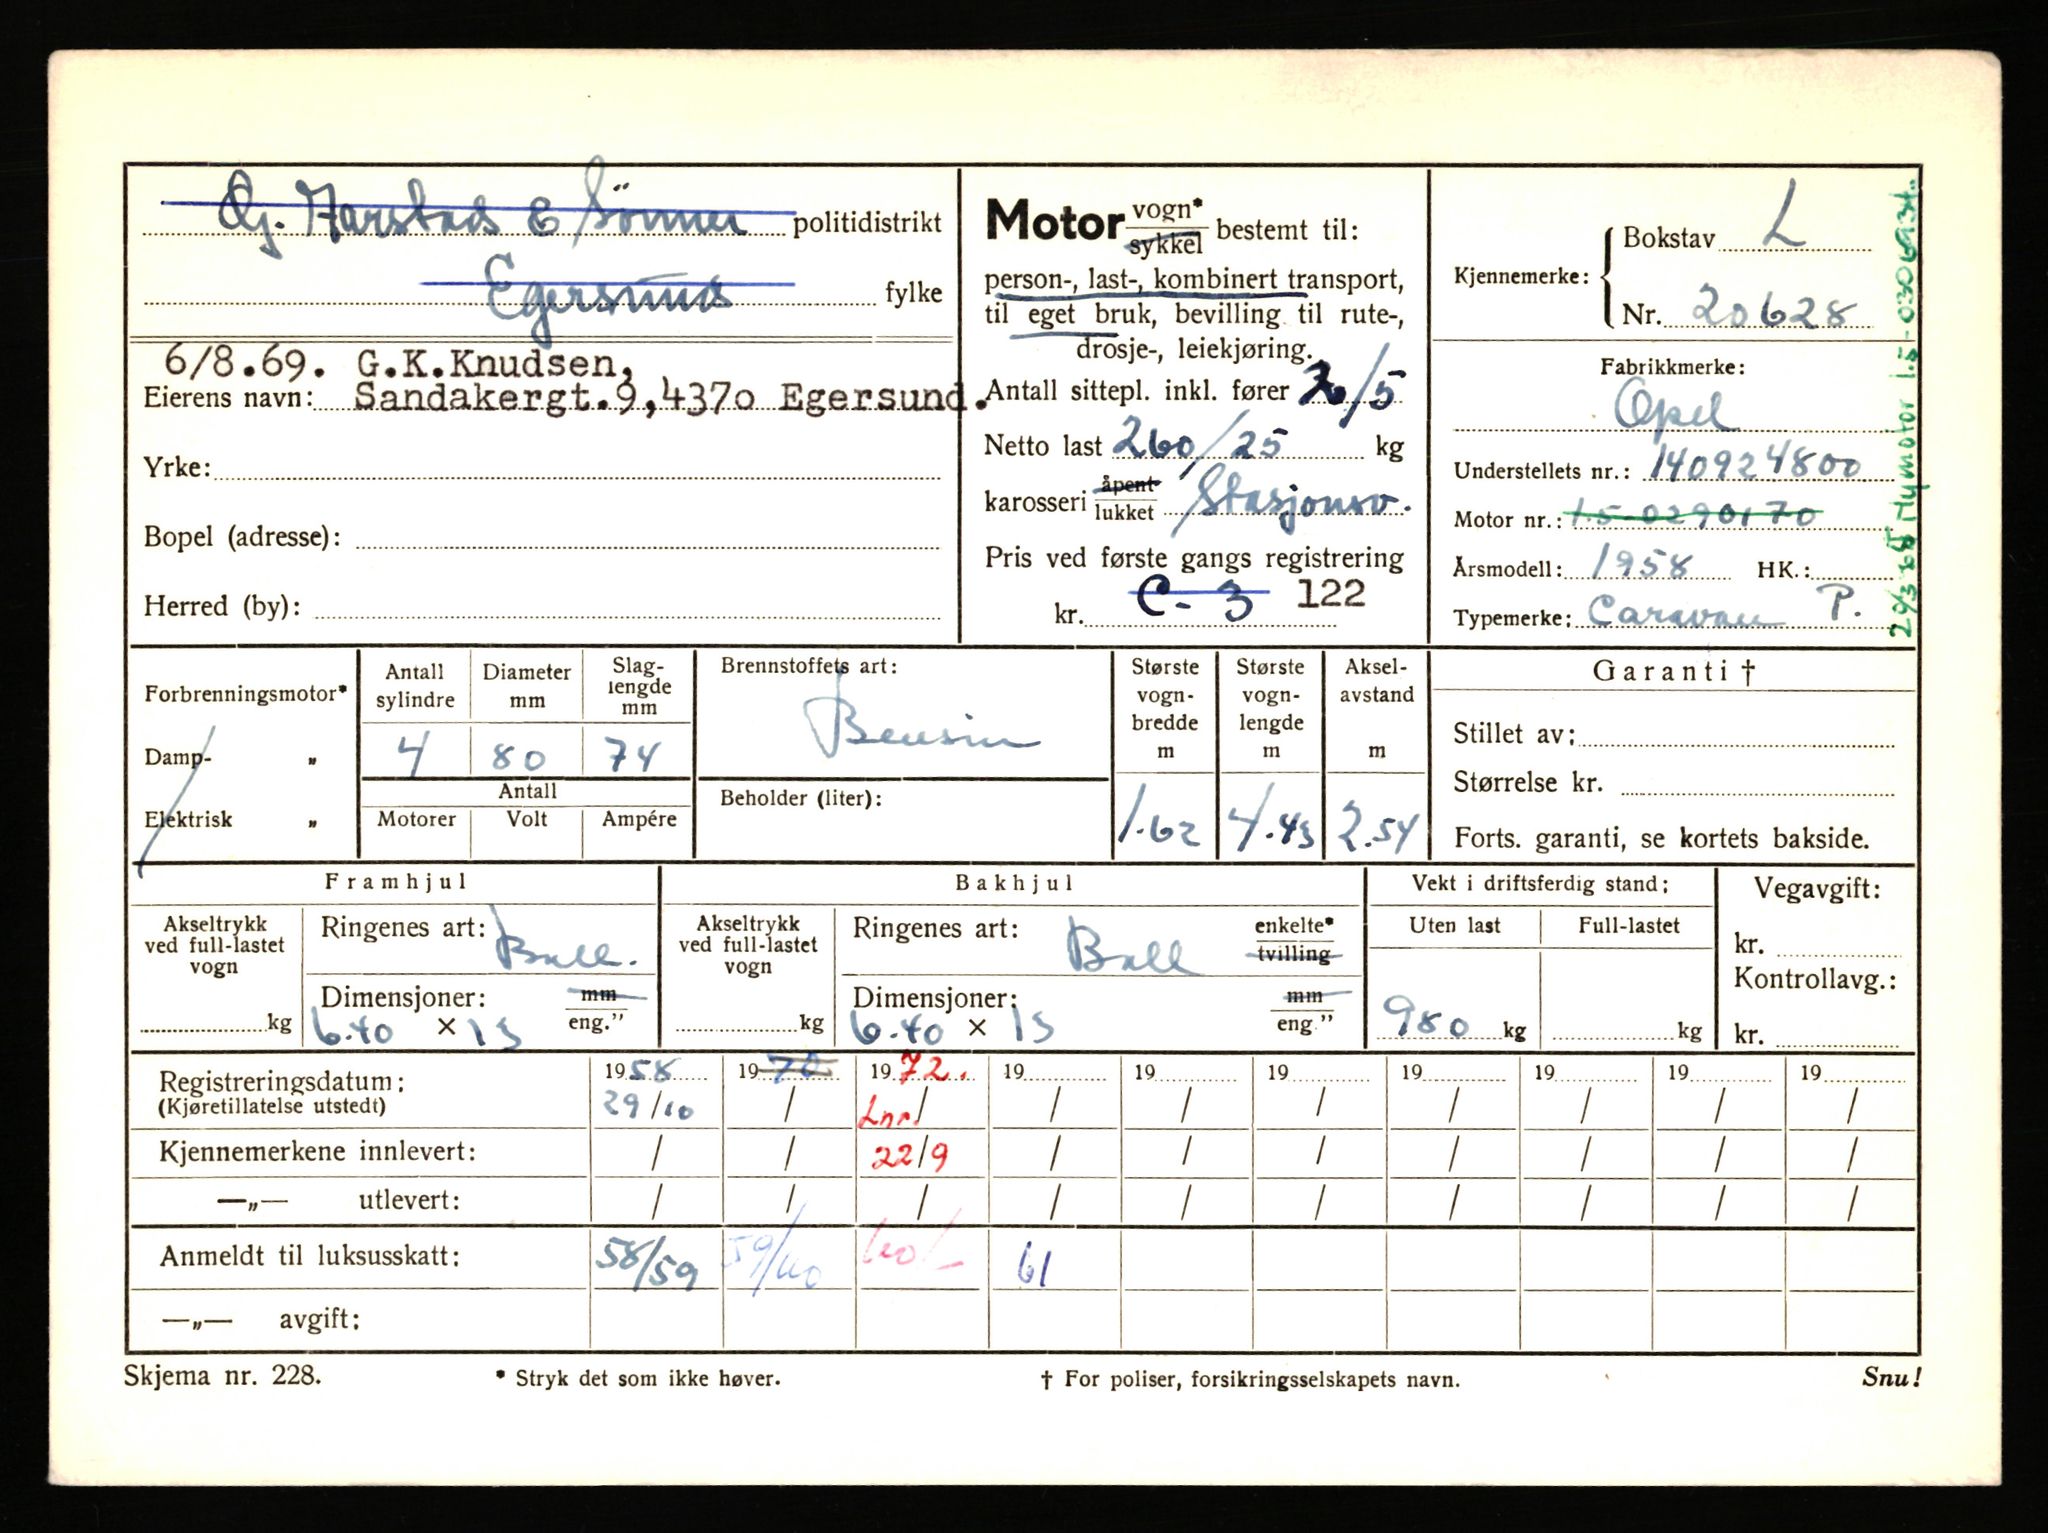 Gj. Aarstads & Sönner politidistrikt
Egersund fylke
6/8.69. G.K.Knudsen,
Eierens navn: Sandakergt.9,4370 Egersund.
Yrke:
Bopel (adresse):
Herred (by):
Motor vogn* sykkel bestemt til:
person-, last-, kombinert transport,
til eget bruk, bevilling til rute-,
drosje-, leiekjøring.
Antall sittepl. inkl. fører 2/5
Netto last 260/25 kg
karosseri åpent lukket Stasjonsv.
Pris ved første gangs registrering
kr. C-3 122
Kjennemerke: Bokstav L
Nr. 20628
Fabrikkmerke:
Opel
Understellets nr.: 140924800
Motor nr.: 1.5-0290170
Årsmodell: 1958 HK.:
Typemerke: Caravan P.
Ny motor 1.5-0306934.
Forbrenningsmotor*
Damp- „
Elektrisk „
Antall sylindre 4
Diameter mm 80
Slaglengde mm 74
Antall
Motorer Volt Ampére
Brennstoffets art:
Bensin
Beholder (liter):
Største vognbredde m 1.62
Største vognlengde m 4.43
Akselavstand m 2.54
Garanti †
Stillet av:
Størrelse kr.
Forts. garanti, se kortets bakside.
Framhjul
Akseltrykk ved full-lastet vogn
kg
Ringenes art: Ball.
Dimensjoner: mm eng."
6.40 × 13
Bakhjul
Akseltrykk ved full-lastet vogn
kg
Ringenes art: Ball enkelte* tvilling
Dimensjoner: mm eng."
6.40 × 13
Vekt i driftsferdig stand:
Uten last Full-lastet
980 kg kg
Vegavgift:
kr.
Kontrollavg.:
kr.
Registreringsdatum: 1958 1970 1972. 19 19 19 19 19 19 19
(Kjøretillatelse utstedt) 29/10 / Lnr. / / / / / / / /
Kjennemerkene innlevert: / / 22/9 / / / / / / /
—„— utlevert: / / / / / / / / / /
Anmeldt til luksusskatt: 58/59 59/60 60/ 61
—„— avgift:
Skjema nr. 228. * Stryk det som ikke høver. † For poliser, forsikringsselskapets navn. Snu!